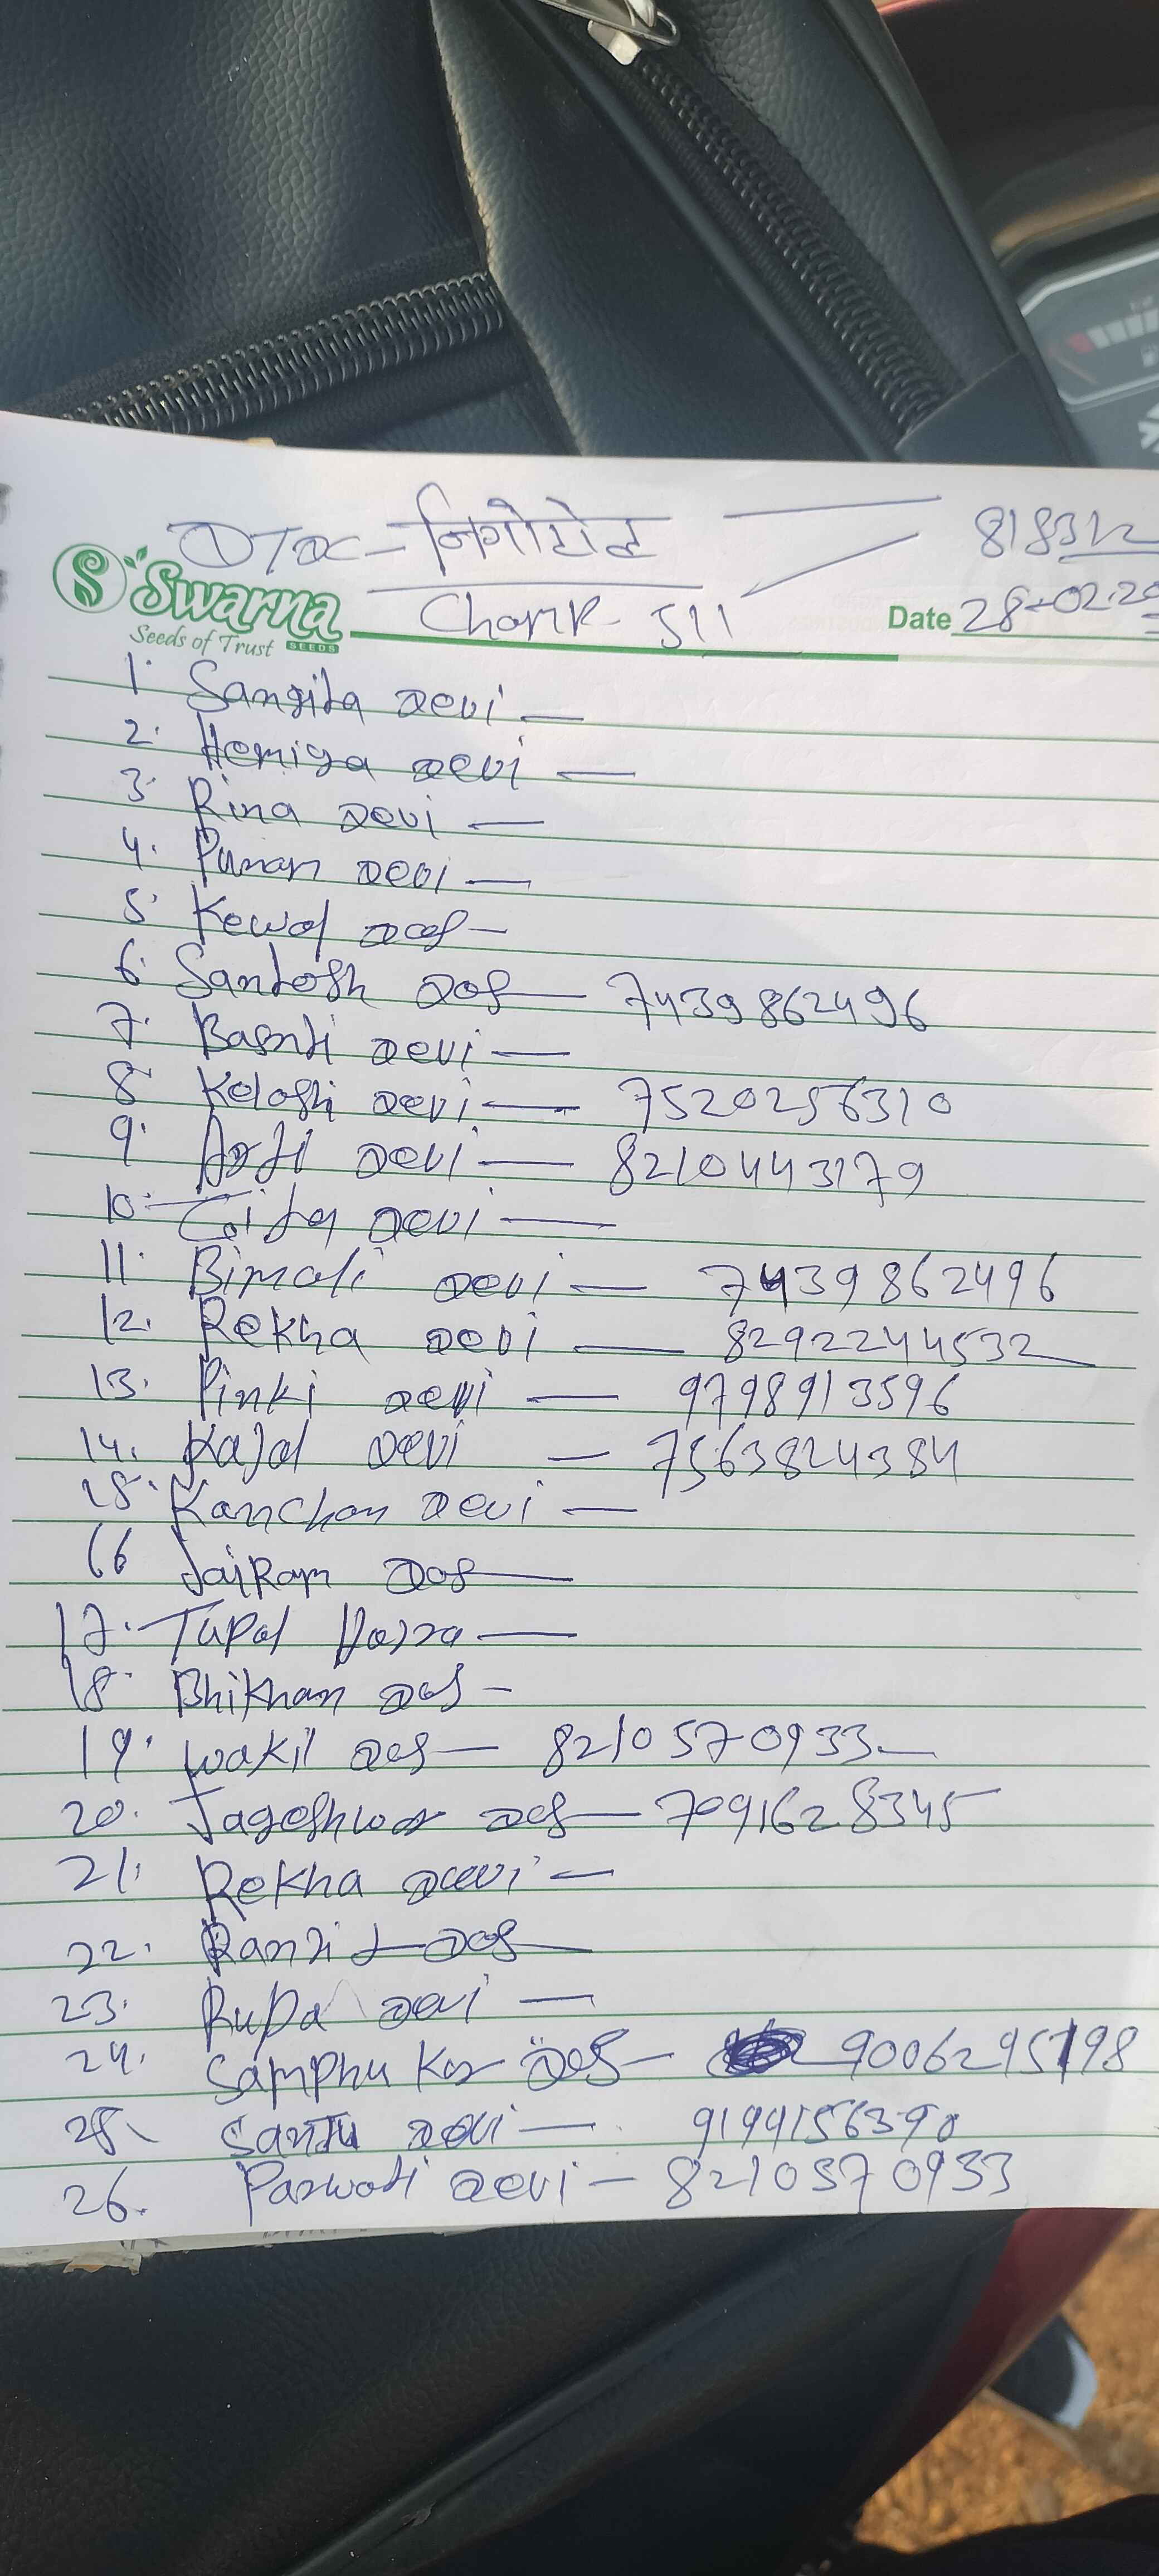 DTDC - निगोरोड 818312
Swarna
Seeds of Trust SEEDS
Date 28-02-20
1. Sangita Devi —
2. Hemiya Devi —
3. Rina Devi —
4. Punam Devi —
5. Kewal Das —
6. Santosh Das — 7439862496
7. Basnti Devi —
8. Kelashi Devi — 7520256310
9. Arti Devi — 8210443179
10. Gita Devi —
11. Bimali Devi — 7439862496
12. Rekha Devi — 8292244532
13. Pinki Devi — 9798913596
14. Kajal Devi — 7563824384
15. Kanchan Devi —
16 Jairam Das —
17. Tupal —
18. Bhikhan Das —
19. Wakil Das — 8210570933
20. Jageshwar Das — 7091628345
21. Rekha Devi —
22. Ranjit Das —
23. Rupa Devi —
24. Samphu Kr Das — 9006295198
25. Santu Devi — 9199156390
26. Parwati Devi — 8210570933